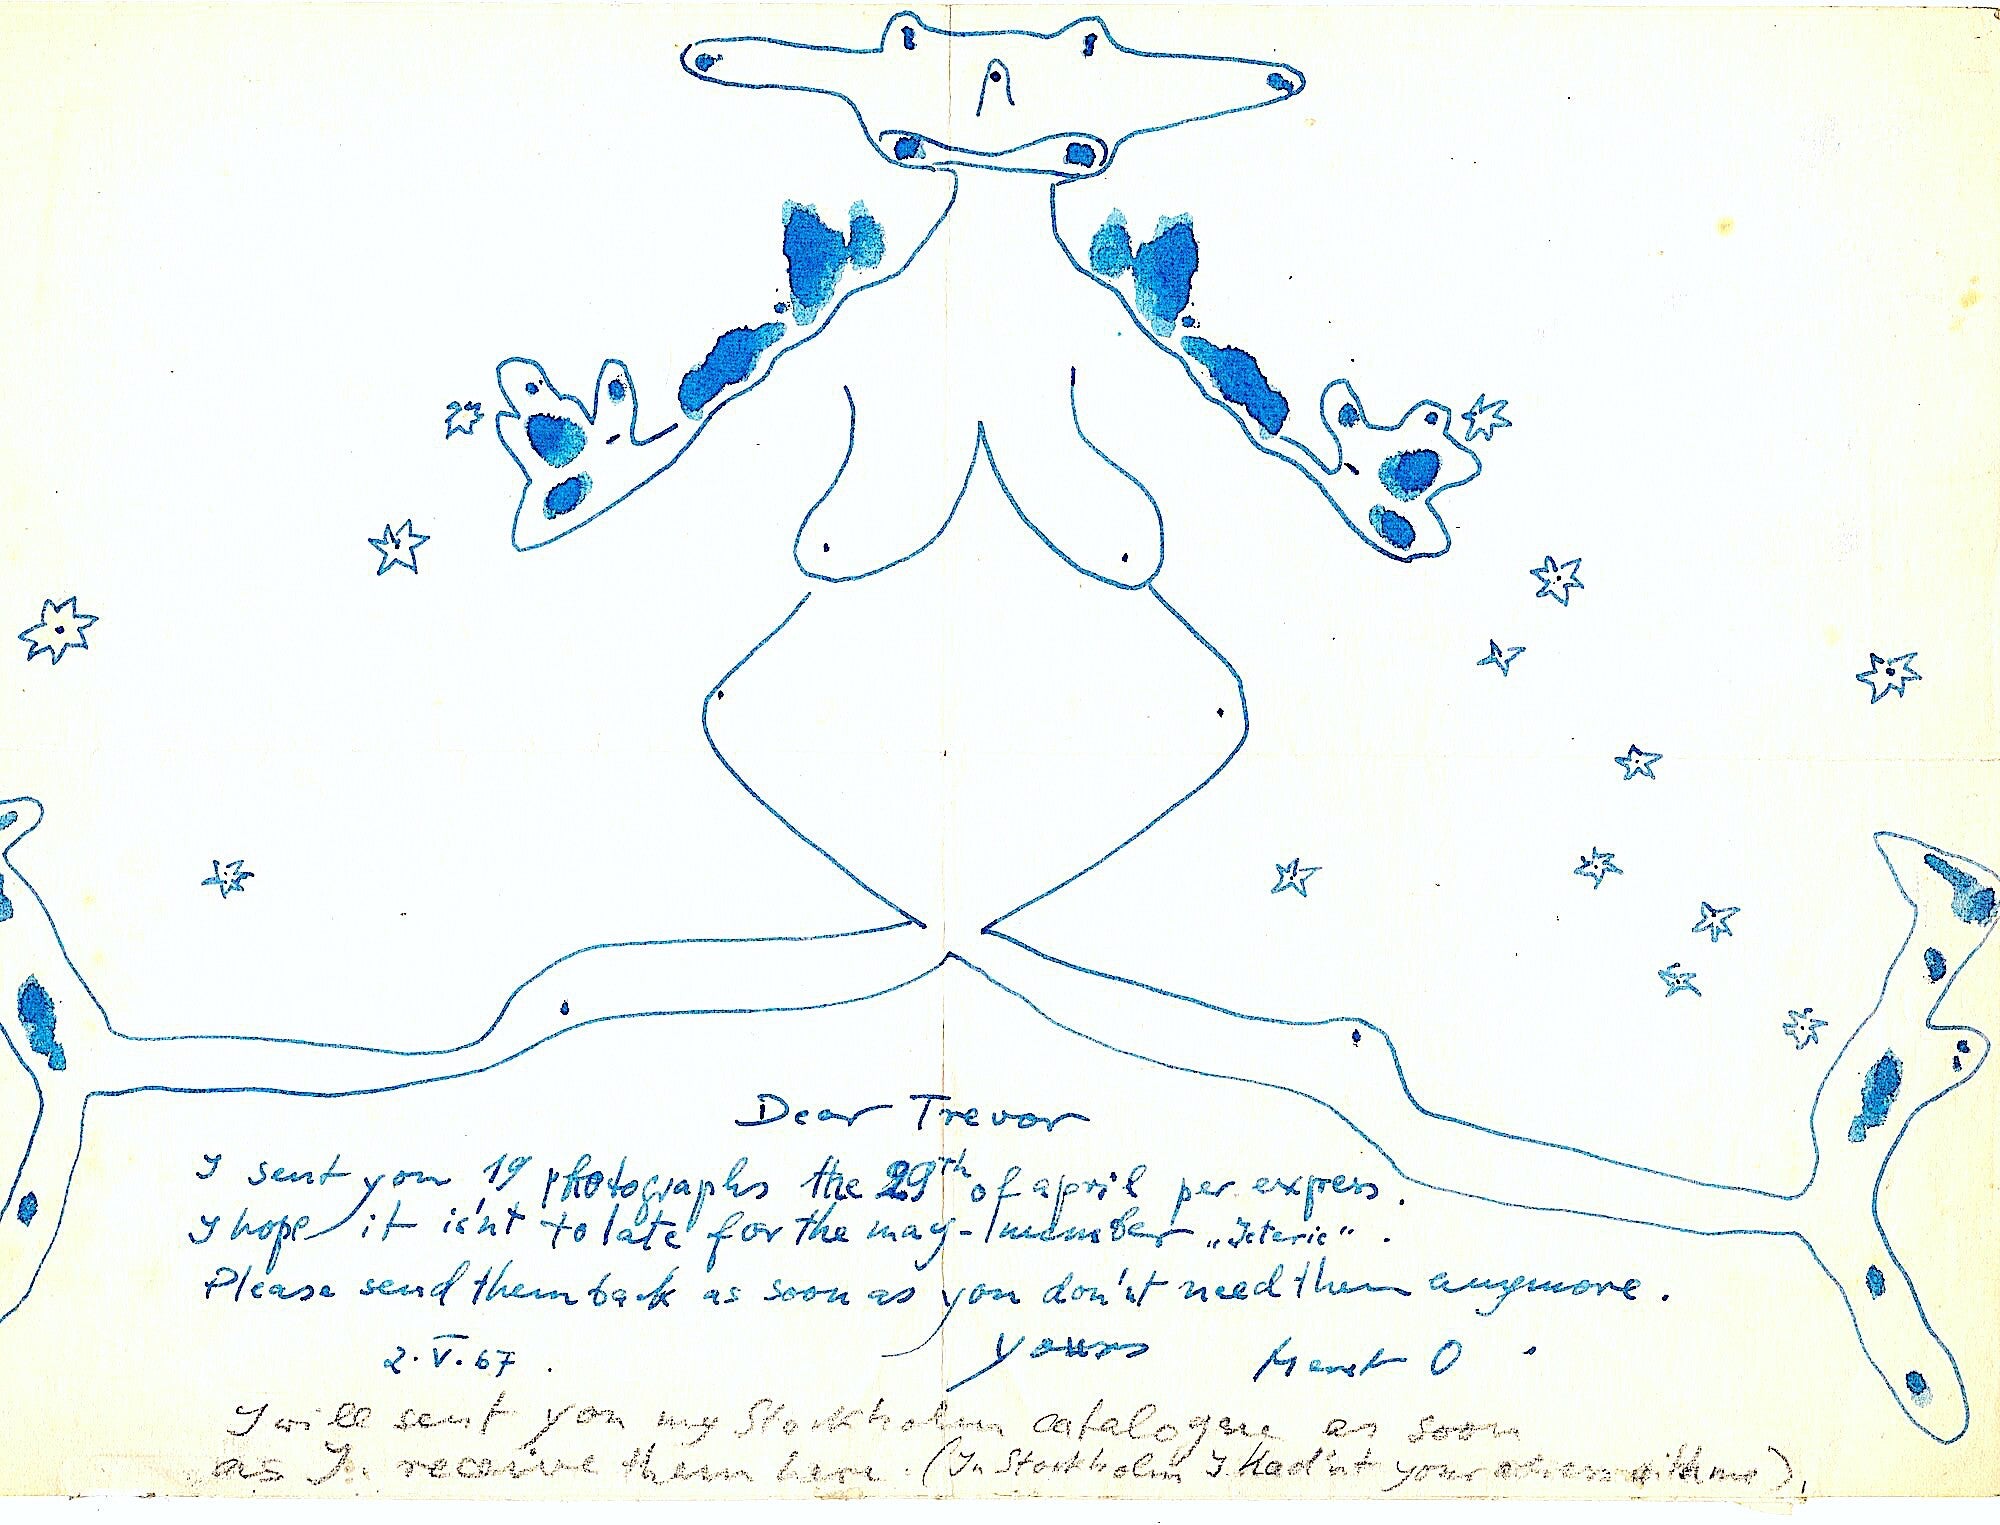 Dear Trevor
I sent you 19 photographs the 29th of april per express.
I hope it is'nt to late for the may-member „Icteric".
Please send them back as soon as you don't need them anymore.
2.V.67. yours Meret O.
I will sent you my Stockholm catalogue as soon
as I receive them here. (In Stockholm I had'nt your adress with me).